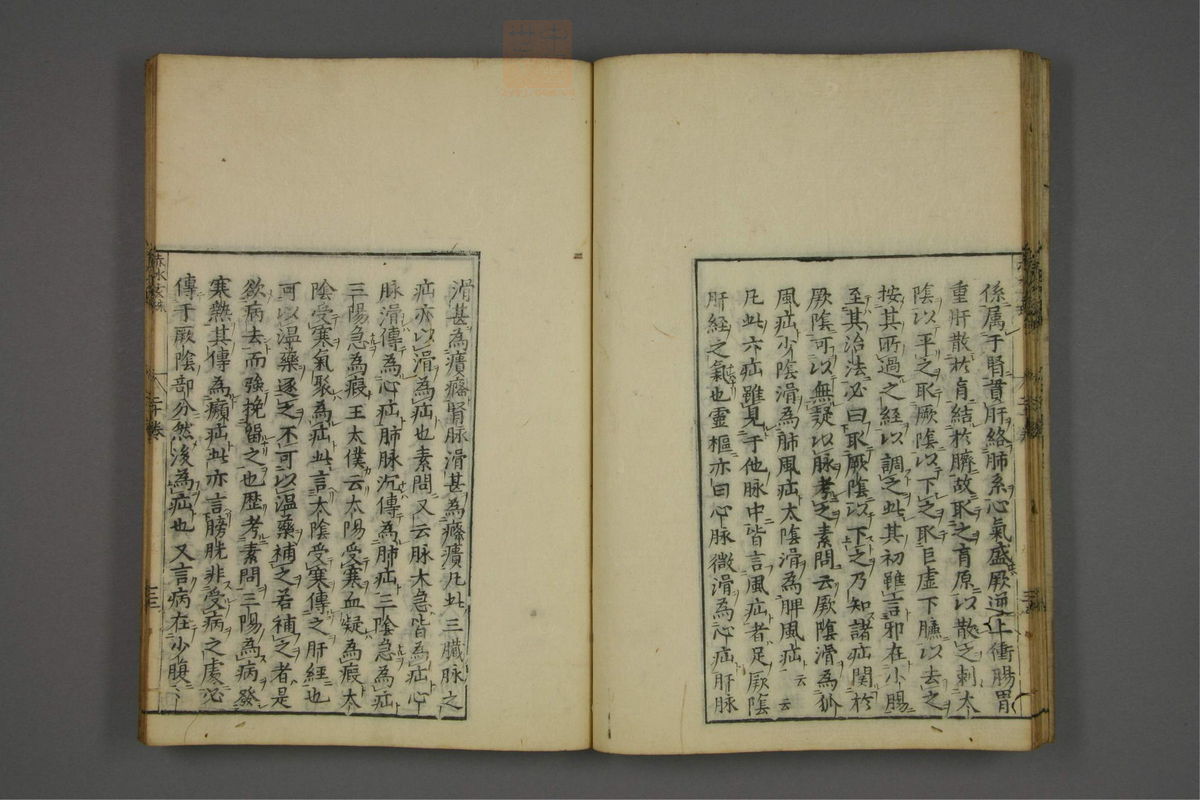 係属于腎貫肝絡肺系心氣盛厥逆上衝腸胃
重肝散於肓結於臍故取之肓原以散之刺太
陰以平之取厥陰以下之取巨虛下臑以去之
按其所過之經以調之此其初雖言邪在小腸
至其治法必曰取厥陰以下之乃知諸疝関於
厥陰可以無疑以脉考之素問云厥陰滑為狐
風疝少陰滑為肺風疝太陰滑為脾風疝云云
凡此六疝雖見于他脉中皆言風疝者足厥陰
肝經之氣也靈樞亦曰心脉微滑為心疝肝脉
滑甚為㿉癃腎脉滑甚為癃㿉凡此三臓脉之
疝亦以滑為疝也素問又云脉木急皆為疝心
脉滑傳為心疝肺脉沉傳為肺疝三陰急為疝
三陽急為瘕王太僕云太陽受寒血凝為瘕太
陰受寒氣聚為疝此言太陰受寒傳之肝經也
可以温藥逐之不可以温藥補之若補之者是
欲病去而強挽留之也歴考素問三陽為病發
寒熱其傳為癩疝此亦言膀胱非受病之處必
傳于厥陰部分然後為疝也又言病在少腹
赤水玄珠
二十卷